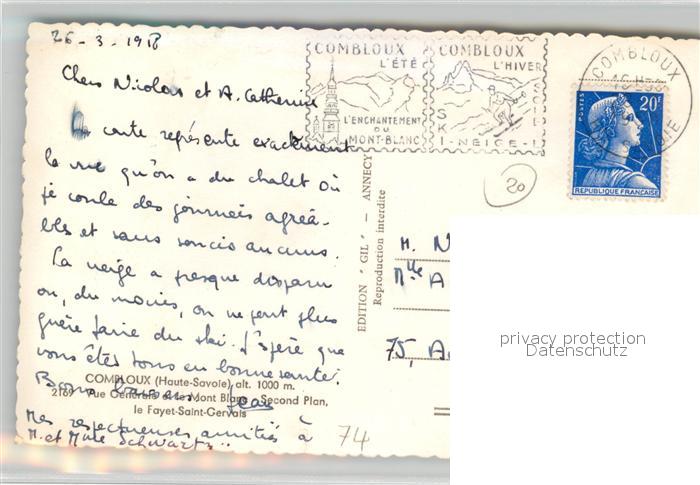 26-3-19
Chers Nicolas et A. Catherine
La carte représente exactement
la vue qu'on a du chalet où
je coule des journées agréa-
bles et sans soucis aucuns.
La neige a presque disparu
ou, du moins, on ne peut plus
guère faire du ski. J'espère que
vous êtes tous en bonne santé.
Bons baisers Jean
Mes respectueuses amitiés à
M. et Mme Schwartz..
COMBLOUX (Haute-Savoie) alt. 1000 m.
2169 Vue Générale et le Mont Blanc - Second Plan,
le Fayet-Saint-Gervais
74
EDITION "GIL" - ANNECY
Reproduction interdite
COMBLOUX
L'ÉTÉ
L'ENCHANTEMENT
DU
MONT-BLANC
COMBLOUX
L'HIVER
SKI-NEIGE-
SOLEIL
COMBLOUX
POSTES
20F
REPUBLIQUE FRANÇAISE
20
M. N
Mlle A
75, A
privacy protection
Datenschutz